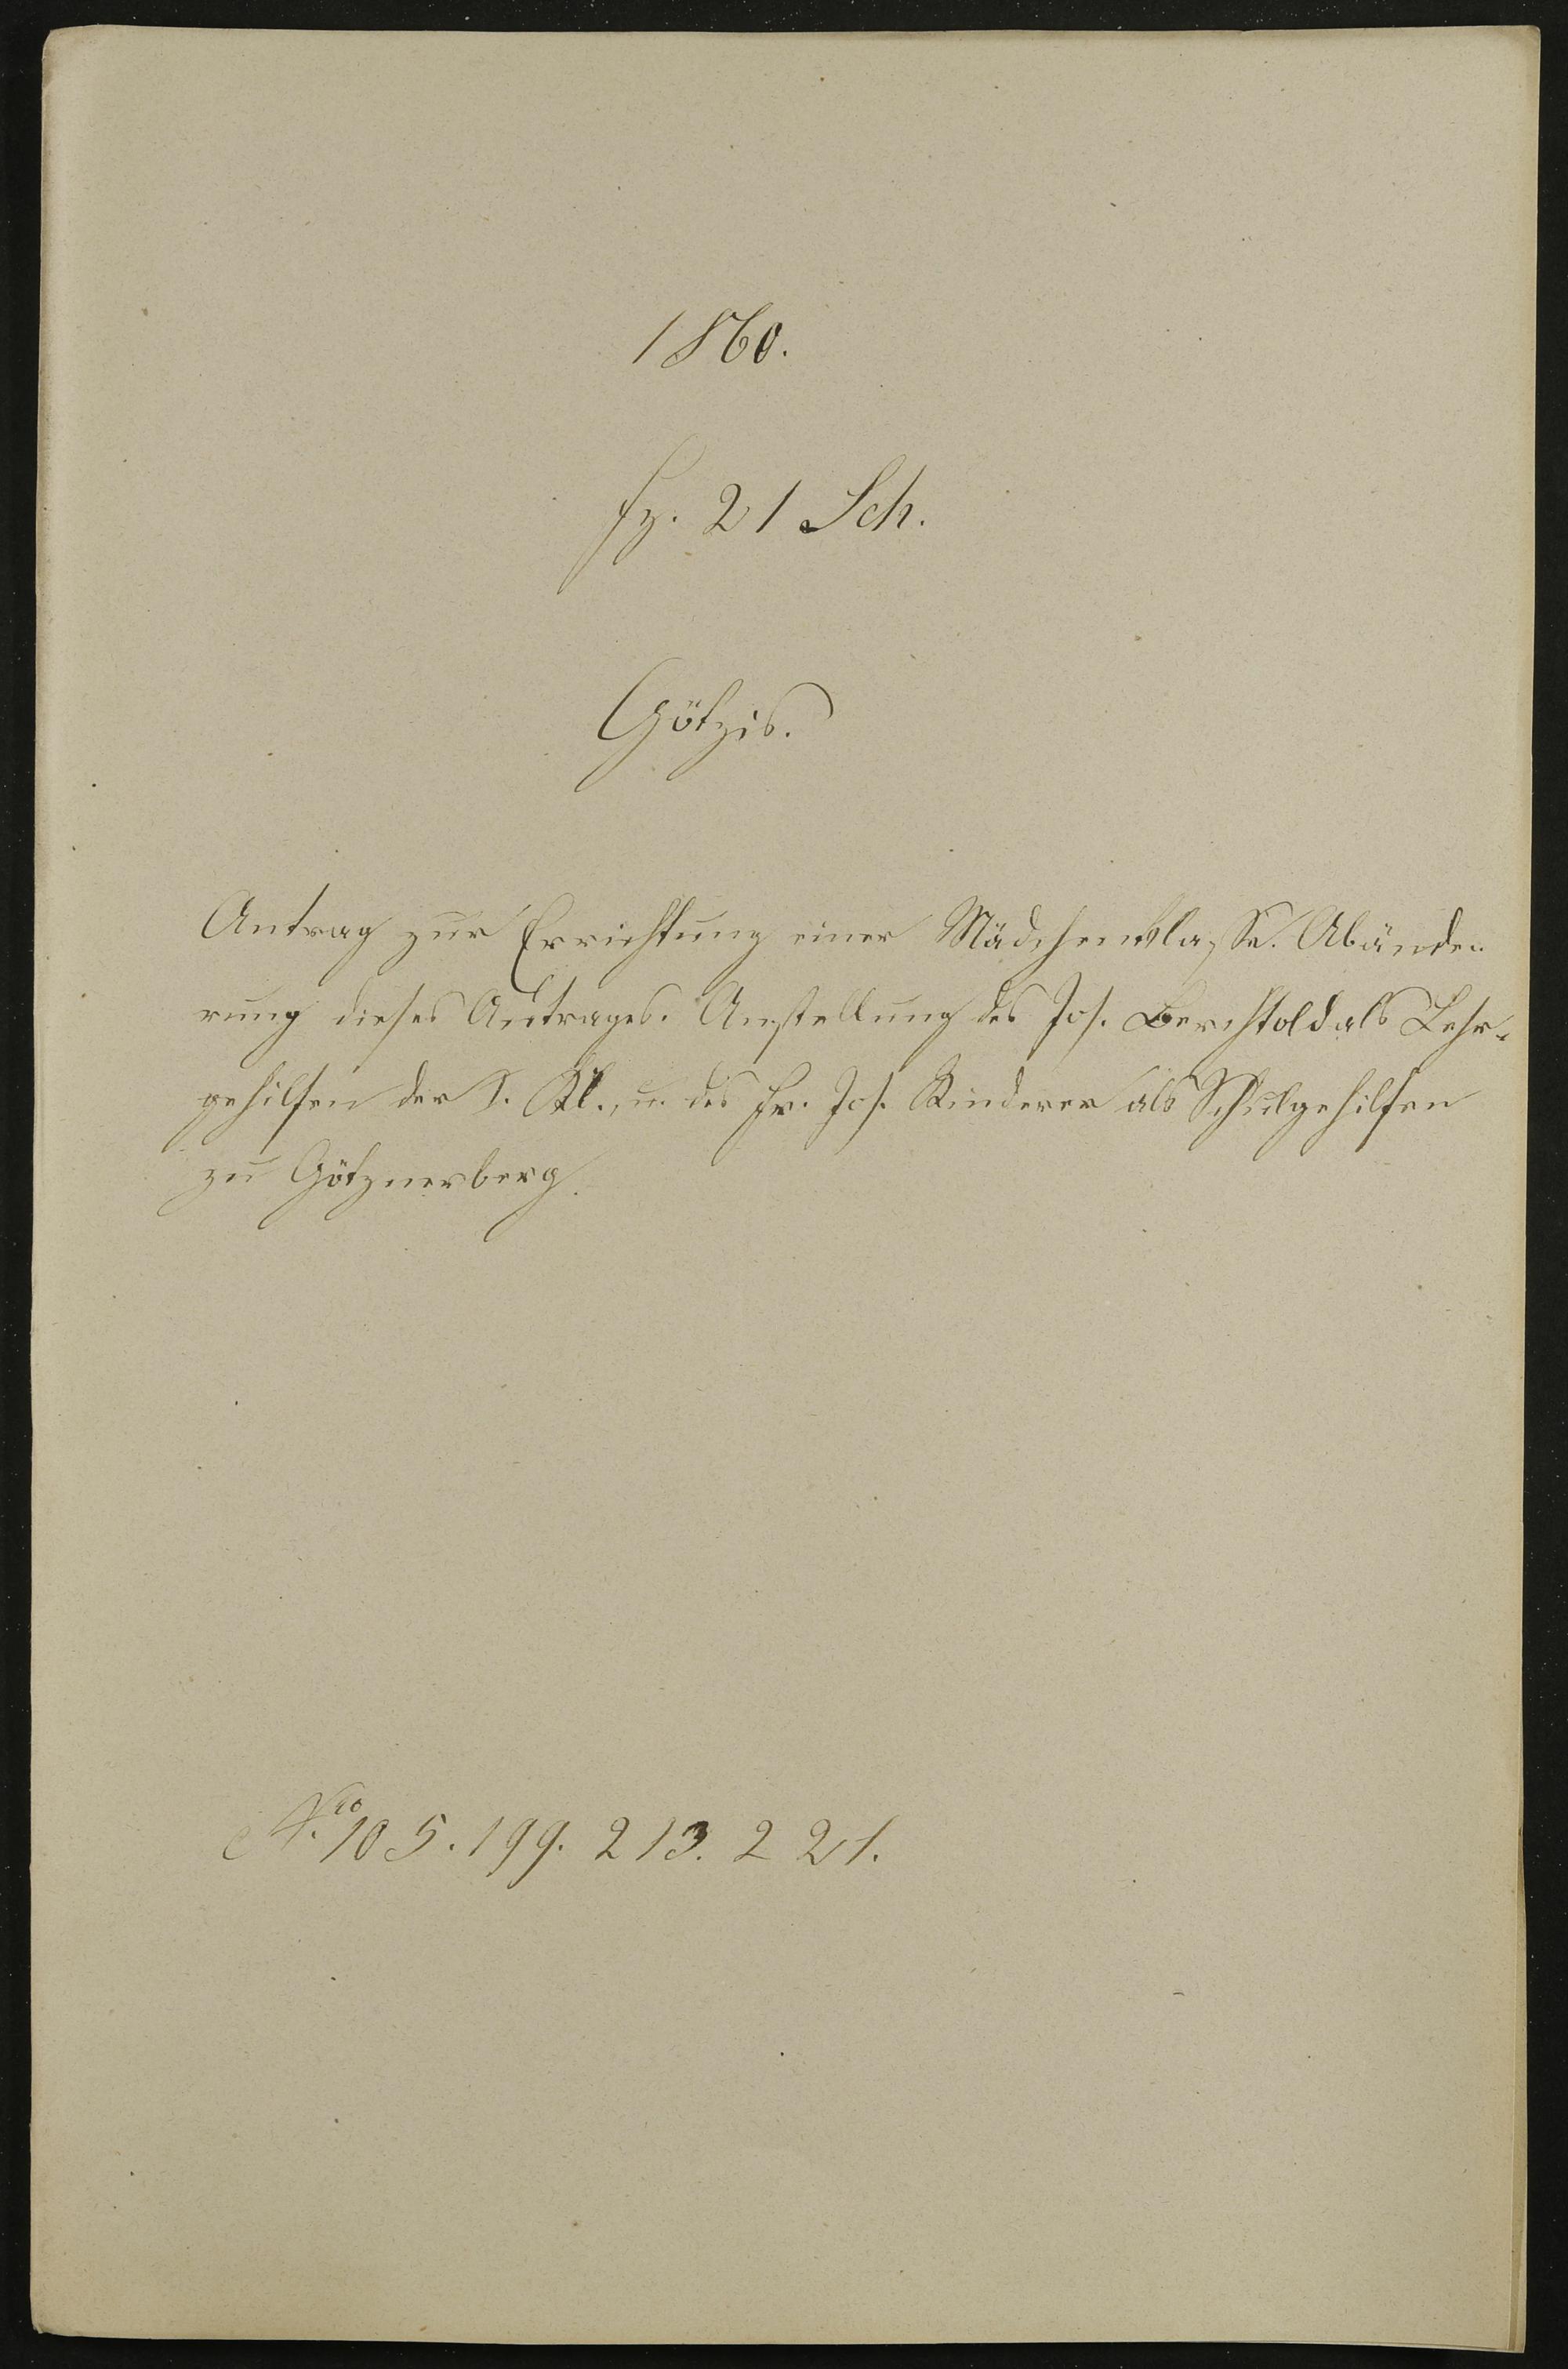 1860.
fz. 21 Sch.
Götzis.
Antrag zur Errichtung einer Mädchenklasse. Abände-
rung dieses Antrages. Anstellung des Jos. Berchtold als Lehr-
gehilfen der I. Kl., u. des Fr. Jos. Kinderer als Schulgehilfen
zu Götznerberg.
Nro 105. 199. 213. 221.